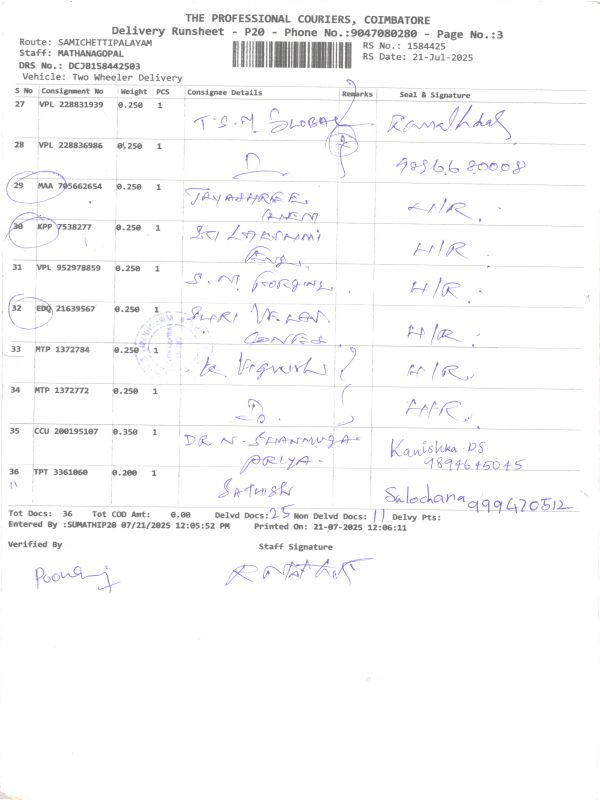 THE PROFESSIONAL COURIERS, COIMBATORE
Delivery Runsheet - P20 - Phone No.:9047080280 - Page No.:3
Route: SAMICHETTIPALAYAM
Staff: MATHANAGOPAL
RS No.: 1584425
DRS No.: DCJB158442503
RS Date: 21-Jul-2025
Vehicle: Two Wheeler Delivery
S No Consignment No Weight PCS Consignee Details Remarks Seal & Signature
27 VPL 228831939 0.250 1 T.S.M GLOBAL
28 VPL 228836986 0.250 1 D 9
29 MAA 705662654 0.250 1 JAYASHREE H/R.
30 KPP 7538277 0.250 1 SRI LAKSHMI H/R.
Eng.
31 VPL 952978859 0.250 1 S.M FORGING. H/R.
32 EDQ 21639567 0.250 1 SHRI VELAN H/R.
33 MTP 1372784 0.250 1 K. Vignesh H/R.
34 MTP 1372772 0.250 1 Do. H/R.
35 CCU 200195107 0.350 1 DR.N.SHANMUGA- Kanishka.DS.
PRIYA. 9894645045
36 TPT 3361060 0.200 1 SATHISH Sulochana 999470512
11
Tot Docs: 36 Tot COD Amt: 0.00 Delvd Docs: 25 Non Delvd Docs: 11 Delvy Pts:
Entered By :SUMATHIP20 07/21/2025 12:05:52 PM Printed On: 21-07-2025 12:06:11
Verified By Staff Signature